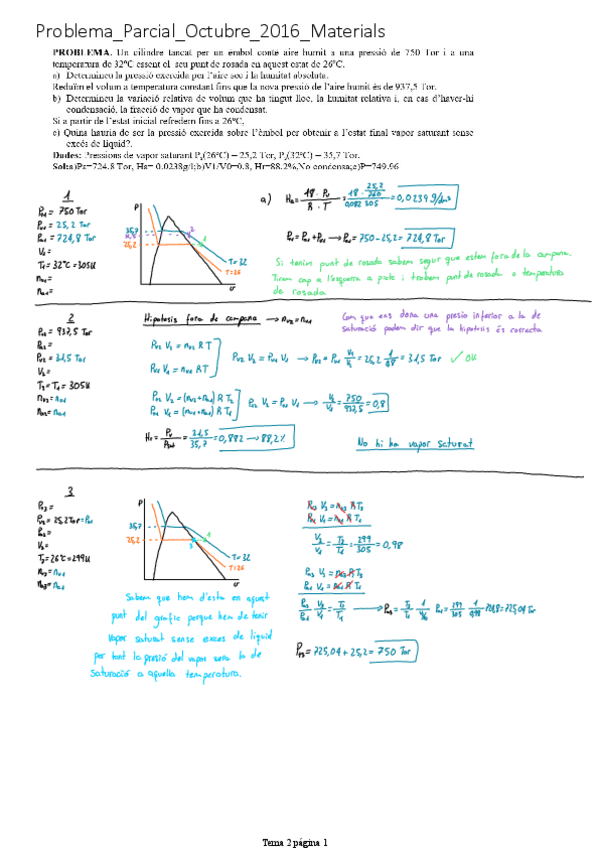 Problema_Parcial_Octubre_2016_Materials
PROBLEMA. Un cilindre tancat per un èmbol conté aire humit a una pressió de 750 Tor i a una
temperatura de 32ºC essent el seu punt de rosada en aquest estat de 26ºC.
a) Determineu la pressió exercida per l'aire sec i la humitat absoluta.
Reduïm el volum a temperatura constant fins que la nova pressió de l'aire humit és de 937,5 Tor.
b) Determineu la variació relativa de volum que ha tingut lloc, la humitat relativa i, en cas d'haver-hi
condensació, la fracció de vapor que ha condensat.
Si a partir de l'estat inicial refredem fins a 26ºC,
c) Quina hauria de ser la pressió exercida sobre l'èmbol per obtenir a l'estat final vapor saturant sense
excés de líquid?.
Dades: Pressions de vapor saturant Ps(26ºC) = 25,2 Tor, Ps(32ºC) = 35,7 Tor.
Sol:a)Pa=724.8 Tor, Ha= 0.0238g/l;b)V1/V0=0.8, Hr=88.2%,No condensa;c)P=749.96
1
PT1 = 750 Tor
Pv1 = 25,2 Tor
Pa1 = 724,8 Tor
V1 =
T1 = 32ºC = 305K
nv1 =
na1 =
P
35,7
25,2
2
1
T=32
T=26
v
a) Ha = 18·Pv / R·T = 18·25,2/760 / 0,082·305 = 0,0239 g/dm³
PT = Pa1 + Pv1 → Pa = 750 - 25,2 = 724,8 Tor
Si tenim punt de rosada sabem segur que estem fora de la campana.
Tirem cap a l'esquerra a pote i trobem punt de rosada o temperatura
de rosada
2
PT2 = 937,5 Tor
Pa2 =
Pv2 = 31,5 Tor
V2 =
T2 = T1 = 305K
nv2 = nv1
na2 = na1
Hipotesis fora de campana → nv2 = nv1
Com que ens dona una presio inferior a la de
saturació podem dir que la hipotesis és correcta
Pv2 V2 = nv2 R T
Pv1 V1 = nv1 R T
Pv2 V2 = Pv1 V1 → Pv2 = Pv1 V1/V2 = 25,2 1/0,8 = 31,5 Tor ✓ OK
PT2 V2 = (nv2+na2) R T2
PT1 V1 = (nv1+na1) R T1
PT2 V2 = PT1 V1 → V2/V1 = 750/937,5 = 0,8
Hr = Pv/Psat = 31,5/35,7 = 0,882 → 88,2%
No hi ha vapor saturat
3
PT3 =
Pv3 = 25,2 Tor = Pv1
Pa3 =
V3 =
T3 = 26ºC = 299K
nv3 = nv1
na3 = na1
P
35,7
25,2
3
1
T=32
T=26
v
Sabem que hem d'esta en aquest
punt del grafic perque hem de tenir
vapor saturat sense exces de liquid
per tant la presió del vapor sera la de
saturació a aquella temperatura.
Pv3 V3 = nv3 R T3
Pv1 V1 = nv1 R T1
V3/V1 = T3/T1 = 299/305 = 0,98
Pa3 V3 = na3 R T3
Pa1 V1 = na1 R T1
Pa3/Pa1 V3/V1 = T3/T1 → Pa3 = T3/T1 1/V3/V1 Pa1 = 299/305 1/0,98 724,8 = 725,04 Tor
PT3 = 725,04 + 25,2 = 750 Tor
Tema 2 página 1